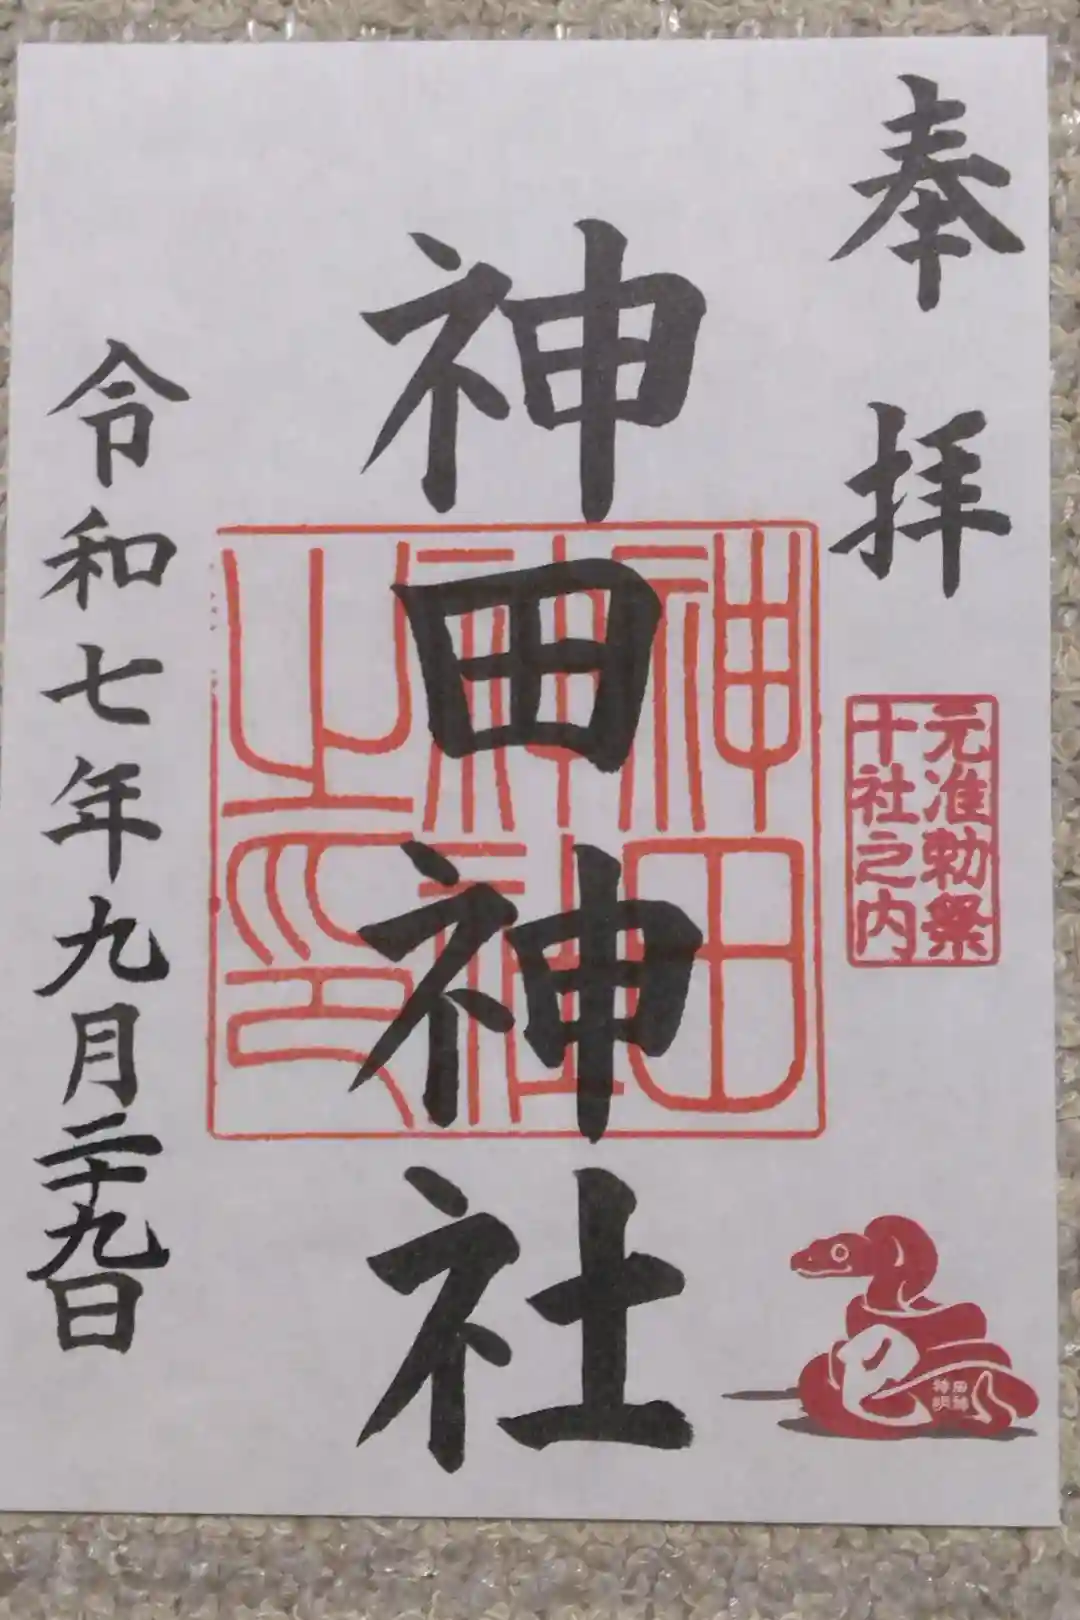 奉拝
元准勅祭
十社之内
巳
神田神社
神田
神社
之印
令和七年九月二十九日